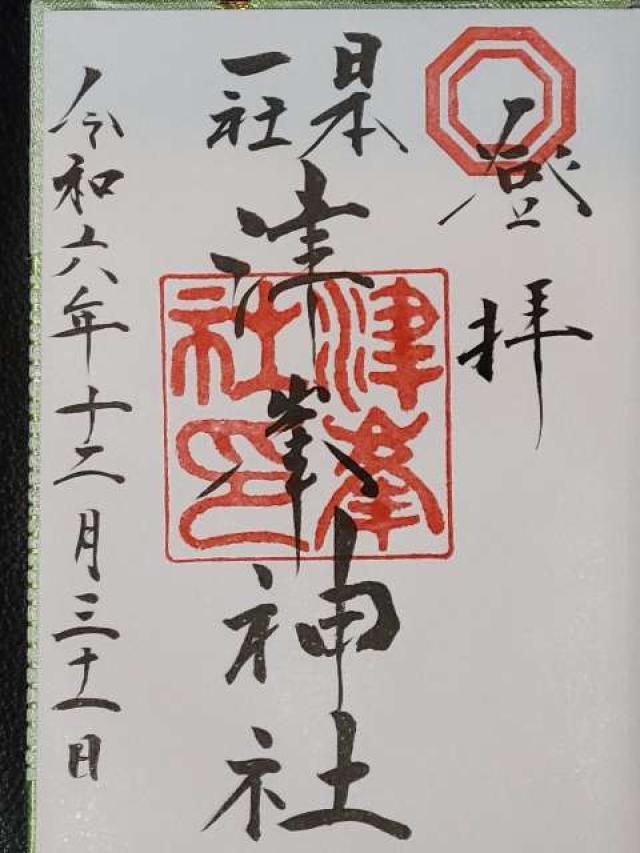 登拝
日本
一社
津峯神社
津峯
社印
令和六年十二月三十一日